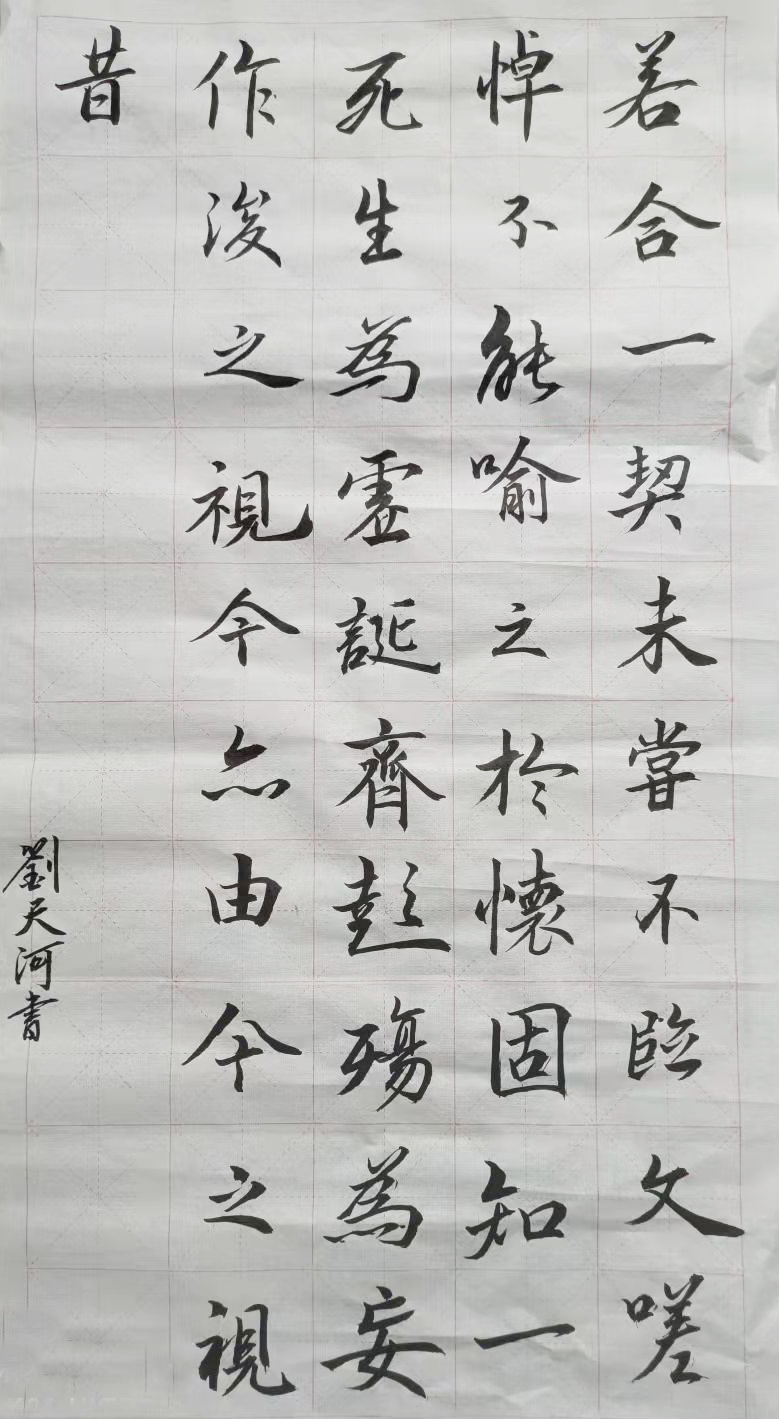 若合一契未嘗不臨文嗟
悼不能喻之於懷固知一
死生為虛誕齊彭殤為妄
作後之視今亦由今之視
昔
劉天河書